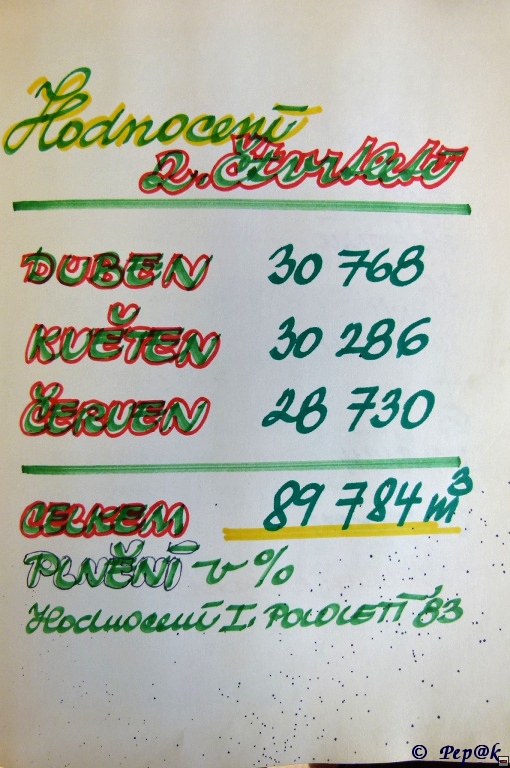 Hodnocení
2. Čtvrtletí
DUBEN 30 768
KVĚTEN 30 286
ČERVEN 28 730
CELKEM 89 784 m³
PLNĚNÍ v %
Hodnocení I. POLOLETÍ '83
© Pep@k